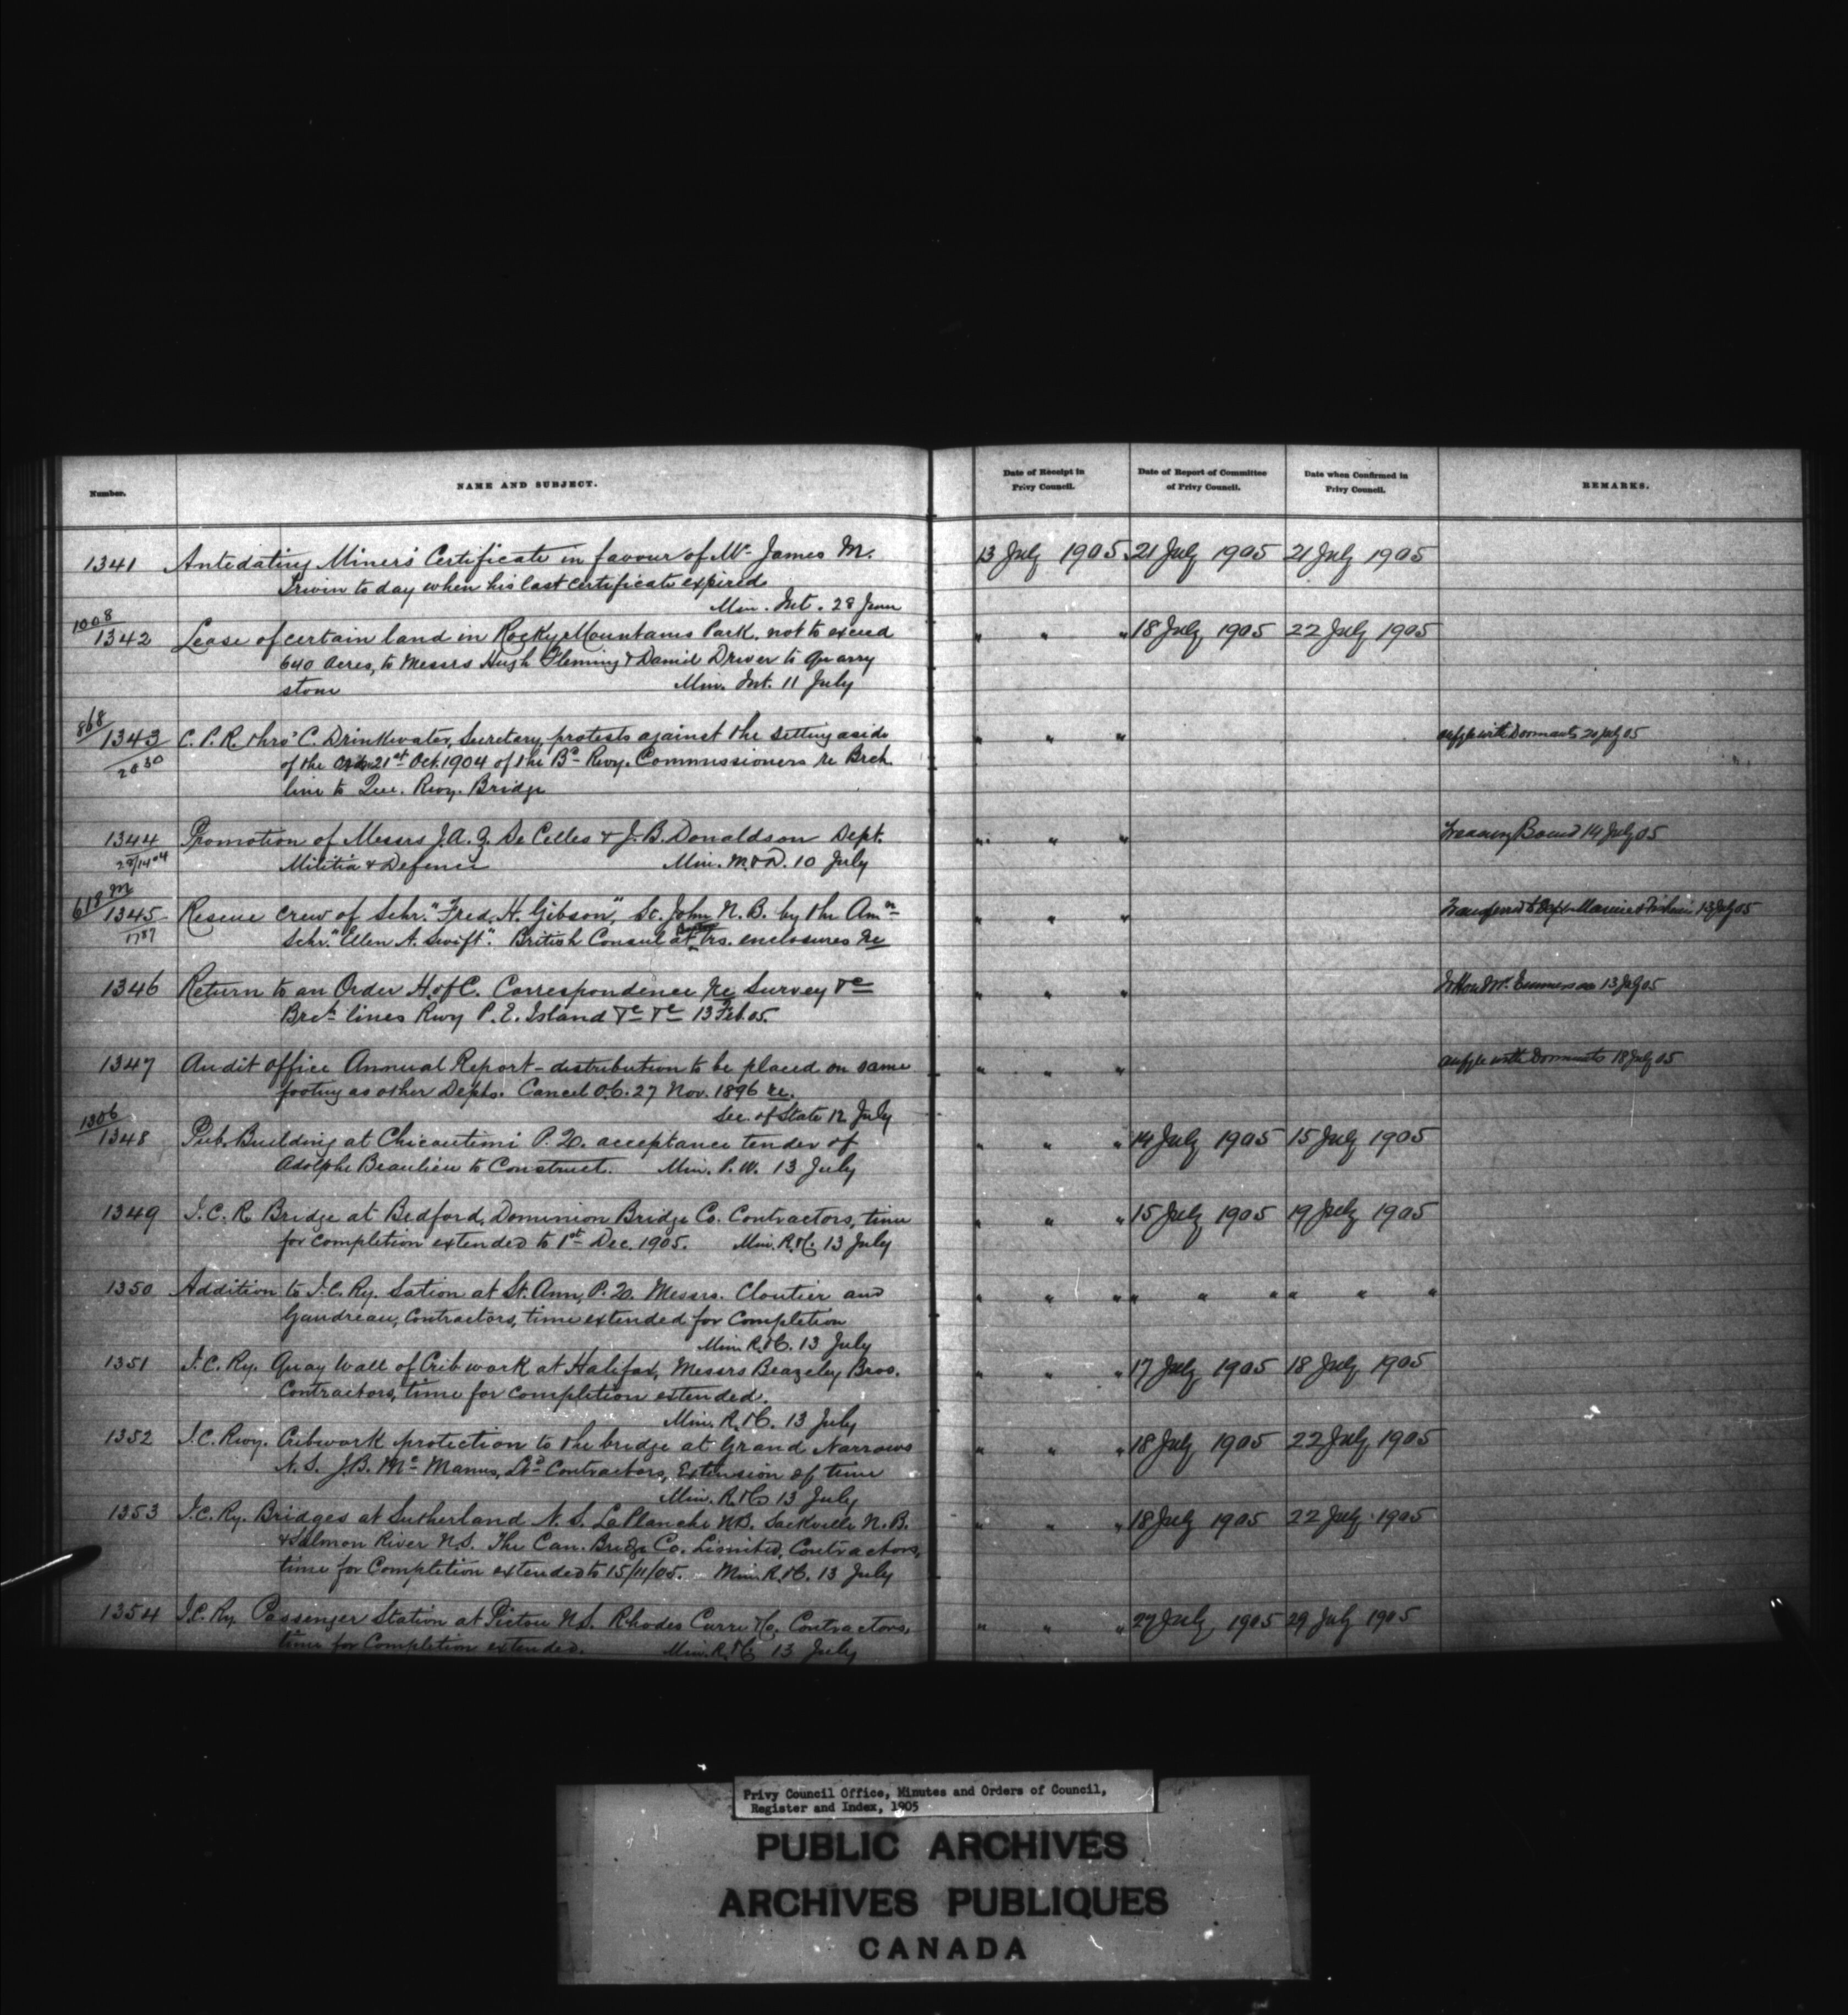 Number. NAME AND SUBJECT. Date of Receipt in Privy Council. Date of Report of Committee of Privy Council. Date when Confirmed in Privy Council. REMARKS.
1341 Antedating Miner's Certificate in favour of Mr. James M. 13 July 1905 21 July 1905 21 July 1905
Irwin to day when his last certificate expired
Min. Int. 28 June
1008
1342 Lease of certain land in Rocky Mountains Park, not to exceed " " " 18 July 1905 22 July 1905
640 acres, to Messrs Hugh Fleming & Daniel Driver to quarry
stone Min. Int. 11 July
868
1343 C. P. R. thro' C. Drinkwater, Secretary, protests against the setting aside " " " with Dormants 20 July 05
2030 of the Order 21st Oct. 1904 of the Bd Rwy. Commissioners re Brch.
line to Que. Rwy. Bridge
1344 Promotion of Messrs J. A. G. De Celles & J. B. Donaldson Dept. " " " Treasury Board 14 July 05
Militia & Defence Min. M. & D. 10 July
618 M
1345 Rescue crew of Schr. "Fred. H. Gibson", St. John N. B. by the Amn " " " Transferred to Dept. Marine & Fisheries 13 July 05
1787 Schr. "Ellen A. Swift". British Consul at trs. enclosures re
1346 Return to an Order H. of C. Correspondence re Survey &c " " " To Hon Mr. Emmerson 13 July 05
Brch lines Rwy P. E. Island &c &c 13 Feb. 05.
1347 Audit office Annual Report - distribution to be placed on same " " " with Dormants 18 July 05
footing as other Depts. Cancel O.C. 27 Nov. 1896 re.
Sec. of State 12 July
1306
1348 Pub. Building at Chicoutimi P. Q. acceptance tender of " " " 14 July 1905 15 July 1905
Adolphe Beaulieu to Construct. Min. P. W. 13 July
1349 I. C. R. Bridge at Bedford, Dominion Bridge Co. Contractors, time " " " 15 July 1905 19 July 1905
for completion extended to 1st Dec. 1905. Min. R. & C. 13 July
1350 Addition to I. C. Ry. Sation at St. Ann, P. Q. Messrs. Cloutier and " " " " " " " " "
Gaudreau, Contractors, time extended for Completion
Min. R. & C. 13 July
1351 I. C. Ry. Quay Wall of Crib work at Halifax, Messrs Beazeley Bros. " " " 17 July 1905 18 July 1905
Contractors, time for completion extended.
Min. R. & C. 13 July
1352 I. C. Rwy. Cribwork protection to the bridge at Grand Narrows " " " 18 July 1905 22 July 1905
N. S. J. B. Mc Manus, Ld Contractors, Extension of time
Min. R. & C. 13 July
1353 I. C. Ry. Bridges at Sutherland N. S. La Planche N.B. Sackville N. B. " " " 18 July 1905 22 July 1905
& Salmon River N. S. The Can. Bridge Co. Limited, Contractors,
time for Completion extended to 15/11/05. Min. R. & C. 13 July
1354 I. C. Ry. Passenger Station at Pictou N. S. Rhodes Curry & Co. Contractors, " " " 27 July 1905 29 July 1905
time for Completion extended. Min. R. & C. 13 July
Privy Council Office, Minutes and Orders of Council,
Register and Index, 1905
PUBLIC ARCHIVES
ARCHIVES PUBLIQUES
CANADA